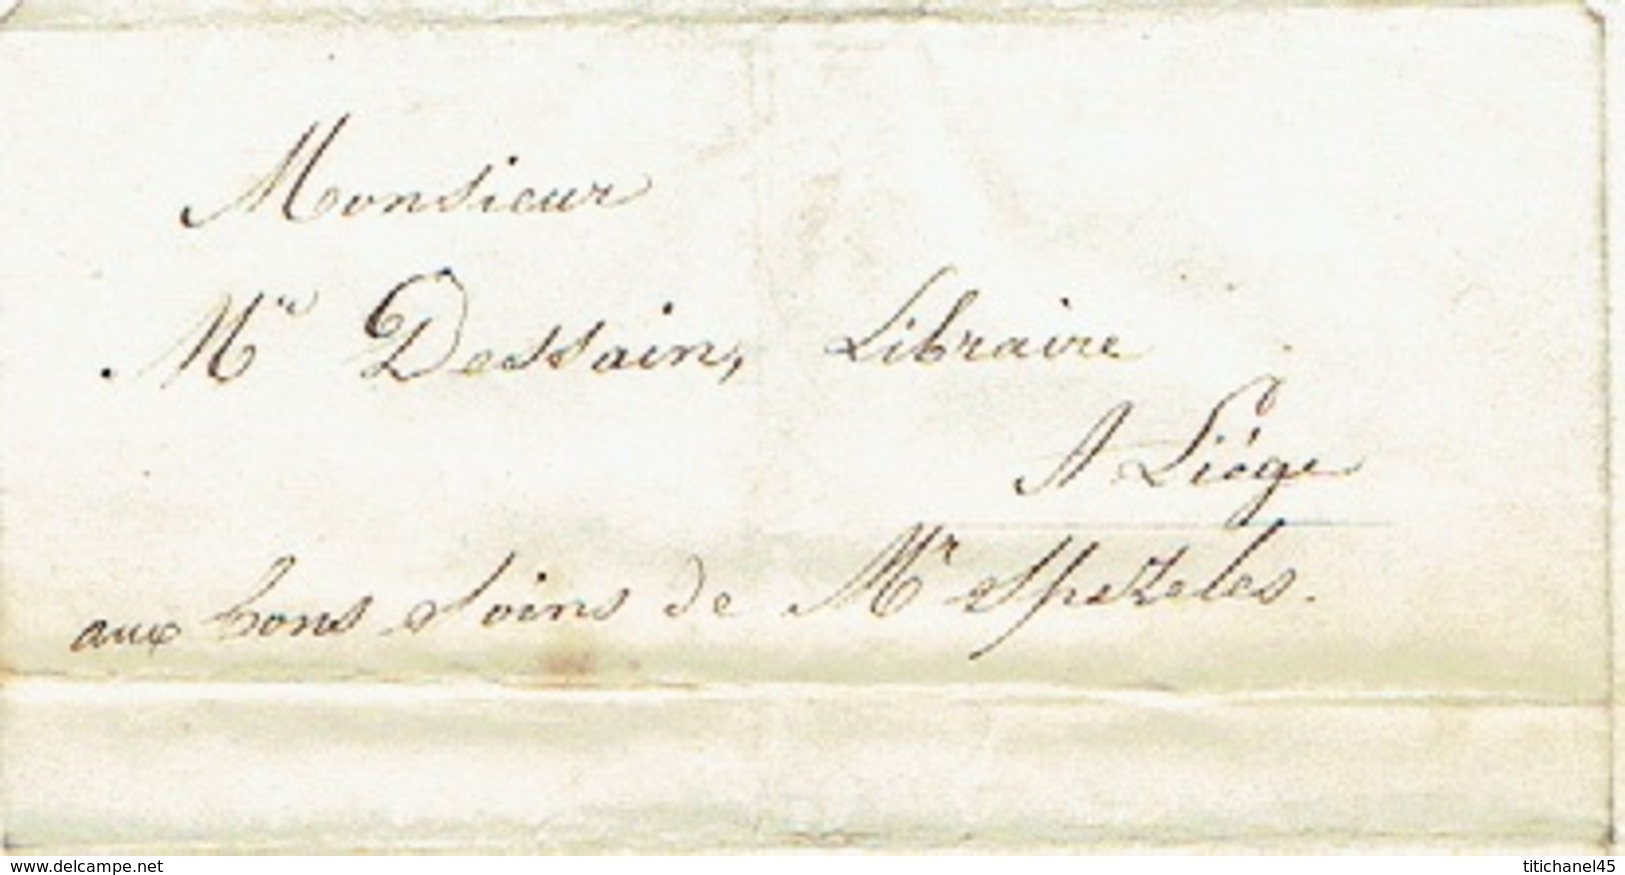 Monsieur
Mr Dessain, Libraire
A Liége
aux bons soins de Mr
www.delcampe.net
titichanel45